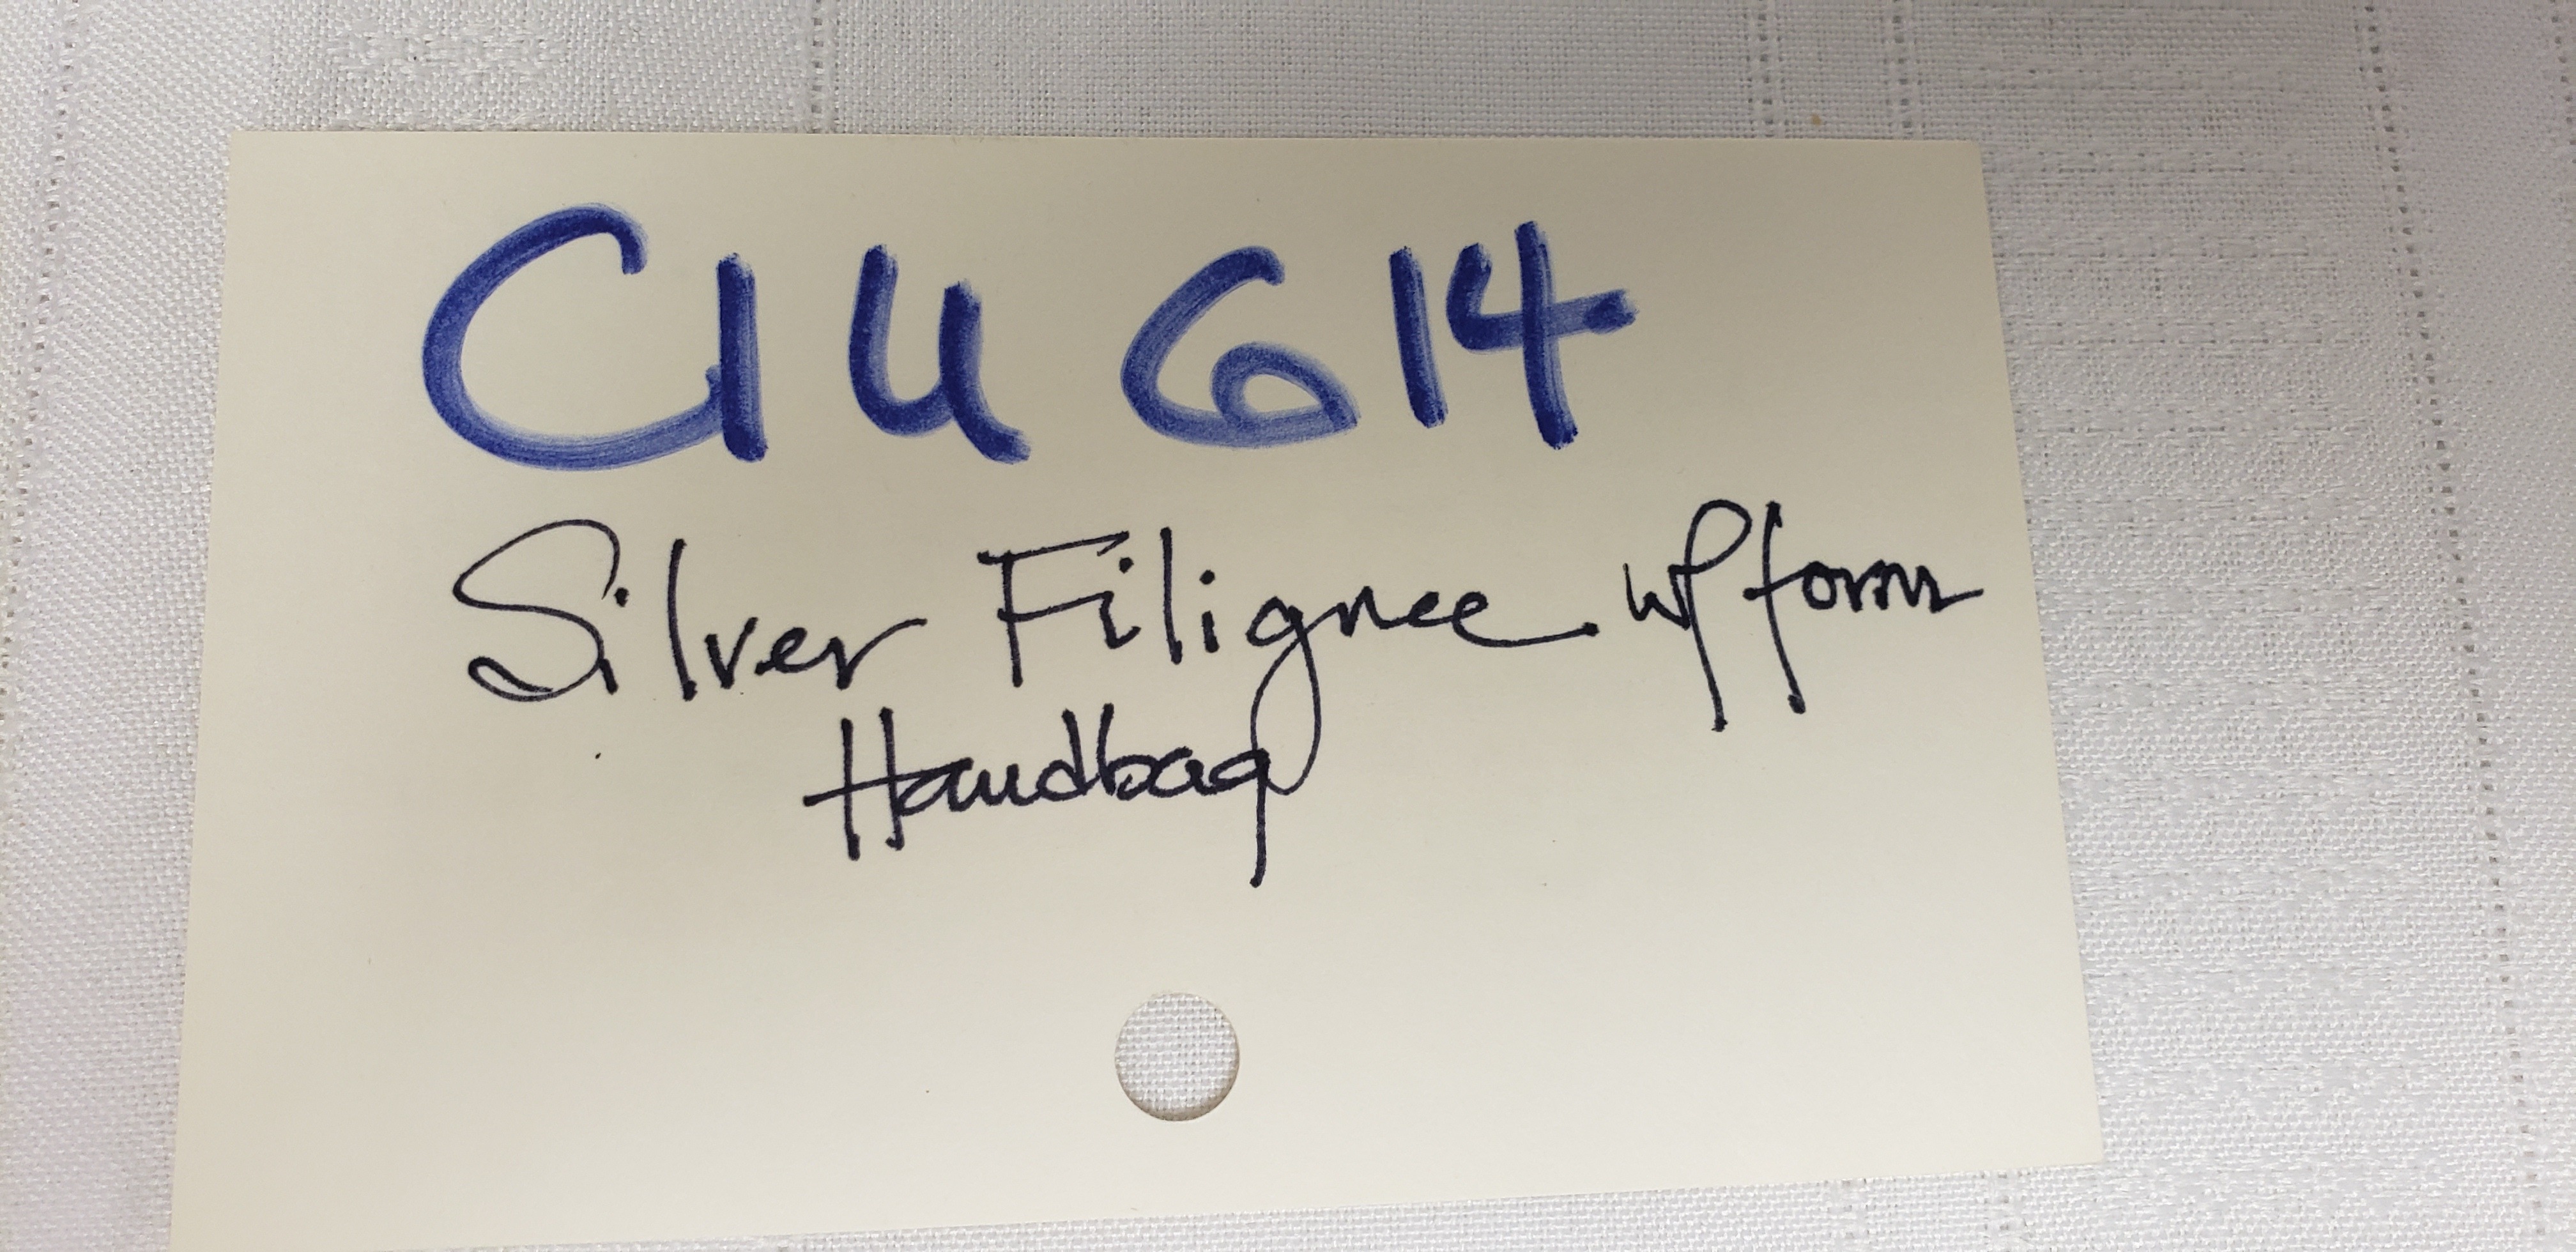 C14 614
Silver Filigree w/ form
Handbag